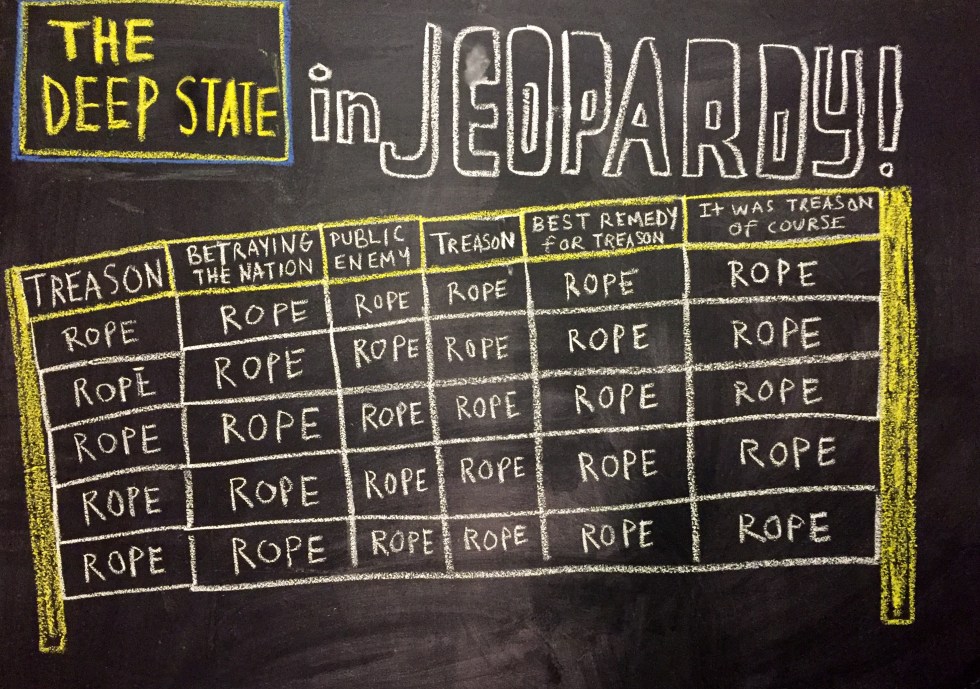 THE
DEEP STATE
in JEOPARDY!
TREASON
BETRAYING
THE NATION
PUBLIC
ENEMY
TREASON
BEST REMEDY
fOR TREASON
It WAS TREASON
OF COURSE
ROPE ROPE ROPE ROPE ROPE ROPE
ROPE ROPE ROPE ROPE ROPE ROPE
ROPE ROPE ROPE ROPE ROPE ROPE
ROPE ROPE ROPE ROPE ROPE ROPE
ROPE ROPE ROPE ROPE ROPE ROPE